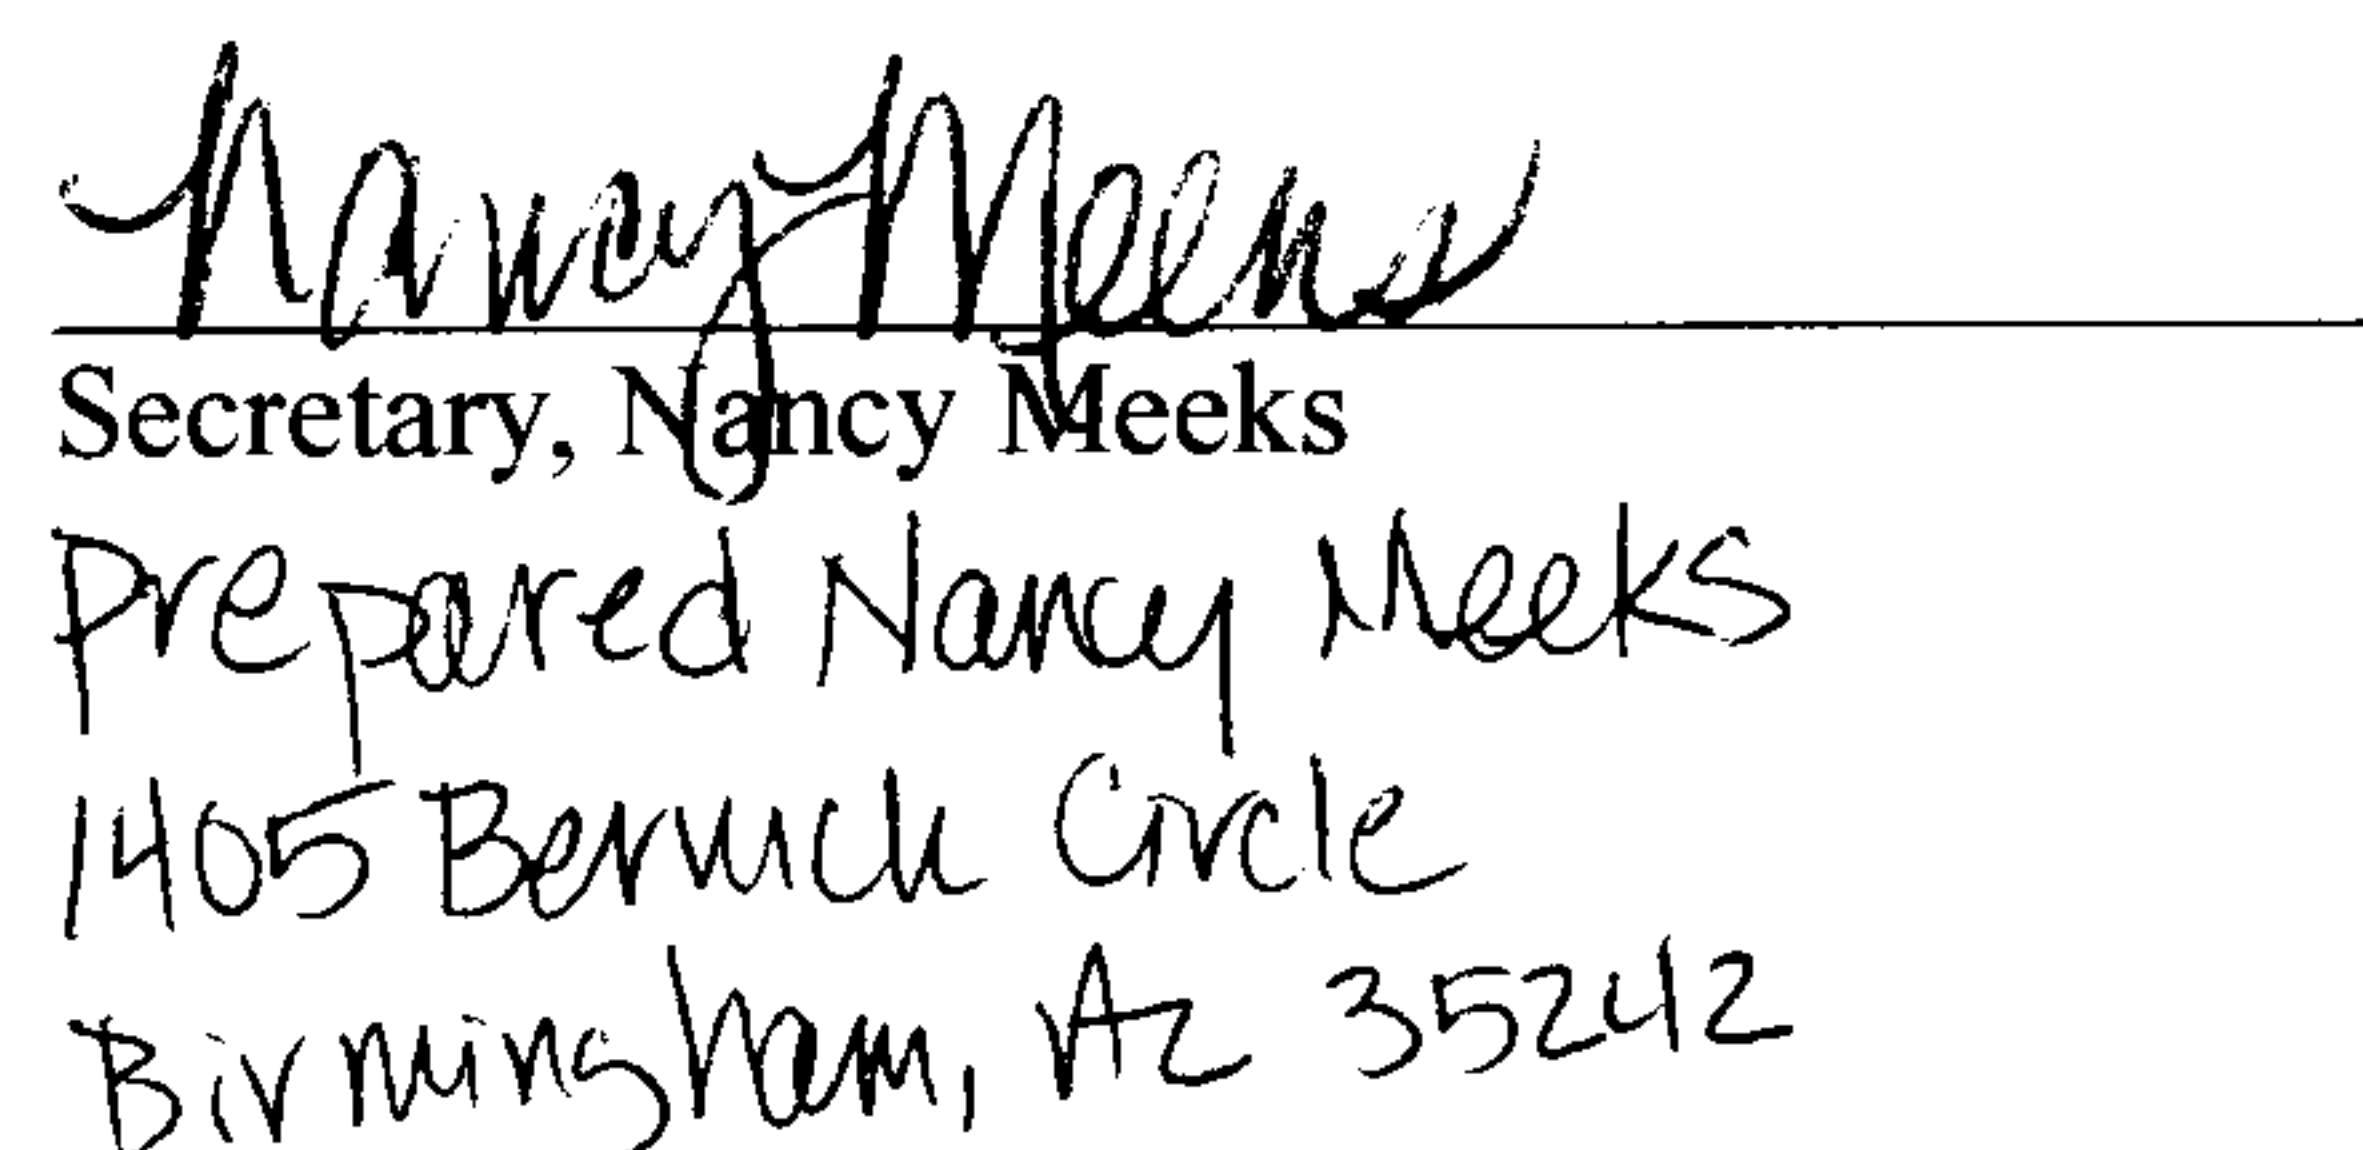 Nancy Meeks
Secretary, Nancy Meeks
Prepared Nancy Meeks
1405 Berwick Circle
Birmingham, AL 35242